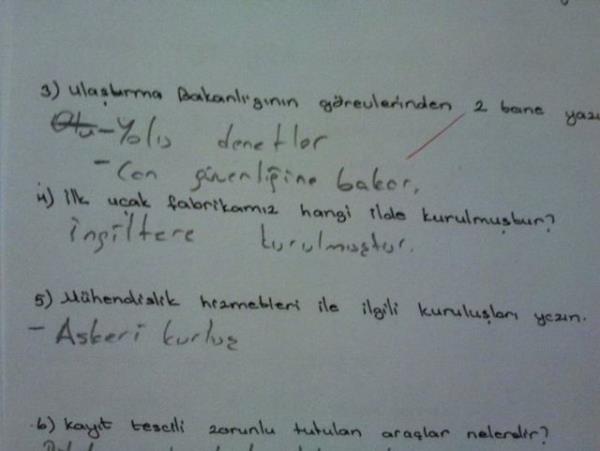 3) Ulaştırma Bakanlığının görevlerinden 2 tane yazı
- Yolıs denetlor
- Can güvenliğine bakar.
4) ilk uçak fabrikamız hangi ilde kurulmuştur?
ingiltere kurulmuştur.
5) Mühendislik hizmetleri ile ilgili kuruluşları yazın.
- Askeri kurluş
6) Kayıt tescili zorunlu tutulan araçlar nelerdir?